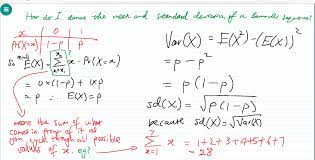 How do I derive the mean and standard deviation of a Bernoulli sequence?
x 0 1
Pr(X=x) 1-p p
So mean E(X) = Σ x · Pr(X=x)
= 0×(1-p) + 1×p
= p ∴ E(X)=p
means the sum of what
comes in front of it as
you cycle through all possible
values of x. eg?
Var(X) = E(X²) - (E(X))²
= p - p²
= p(1-p)
sd(X) = √p(1-p)
because sd(X) = √Var(X)
7
Σ x = 1+2+3+4+5+6+7
x=1 = 28